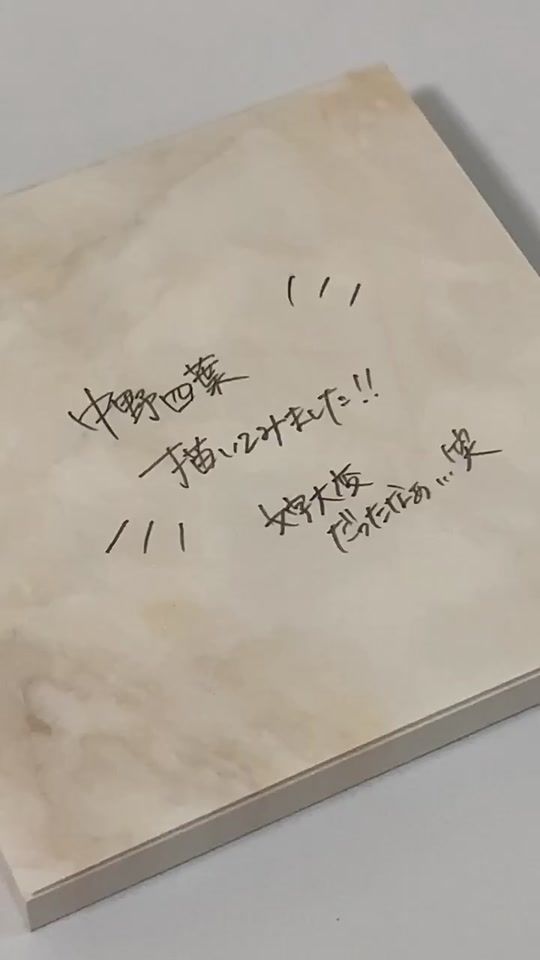 中野四葉
描いてみました!!
文字大変
だったなぁ…(笑